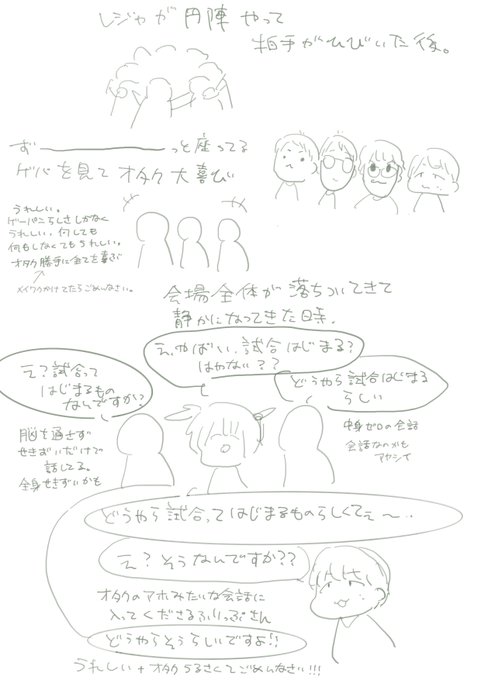 レジャが円陣やって
拍手がひびいた後。
ず────っと座ってる
ゲバを見てオタク大喜び
うれしい。
うれしい、何しても
何もしなくてもうれしい。
オタク勝手に全てを喜ぶ
メイワクかけてたらごめんなさい。
会場全体が落ちついてきて
静かになってきた時。
え、やばい、試合はじまる?
はやない??
え?試合って
はじまるもの
なんですか?
どうやら試合はじまる
らしい
脳を通さず
せきずいだけで
話してる。
全身せきずいかも
中身ゼロの会話
会話なのかも
アヤシイ
どうやら試合ってはじまるものらしくてぇ〜…
え?そうなんですか??
オタクのアホみたいな会話に
入ってくださるふりっぷさん
どうやらそうらしいですよ!!
うれしい+オタクうるさくてごめんなさい!!!